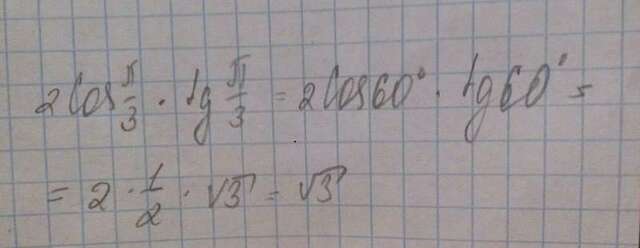 2 cos π/3 · tg π/3 = 2 cos 60° · tg 60° =
= 2 · 1/2 · √3 = √3